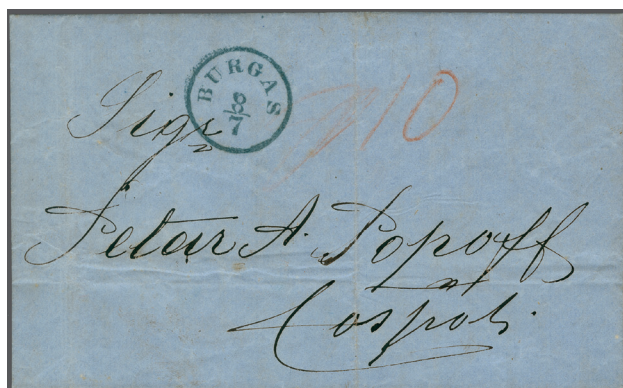 BURGAS
Sigr
10
Petar A. Popoff
Cospoli.